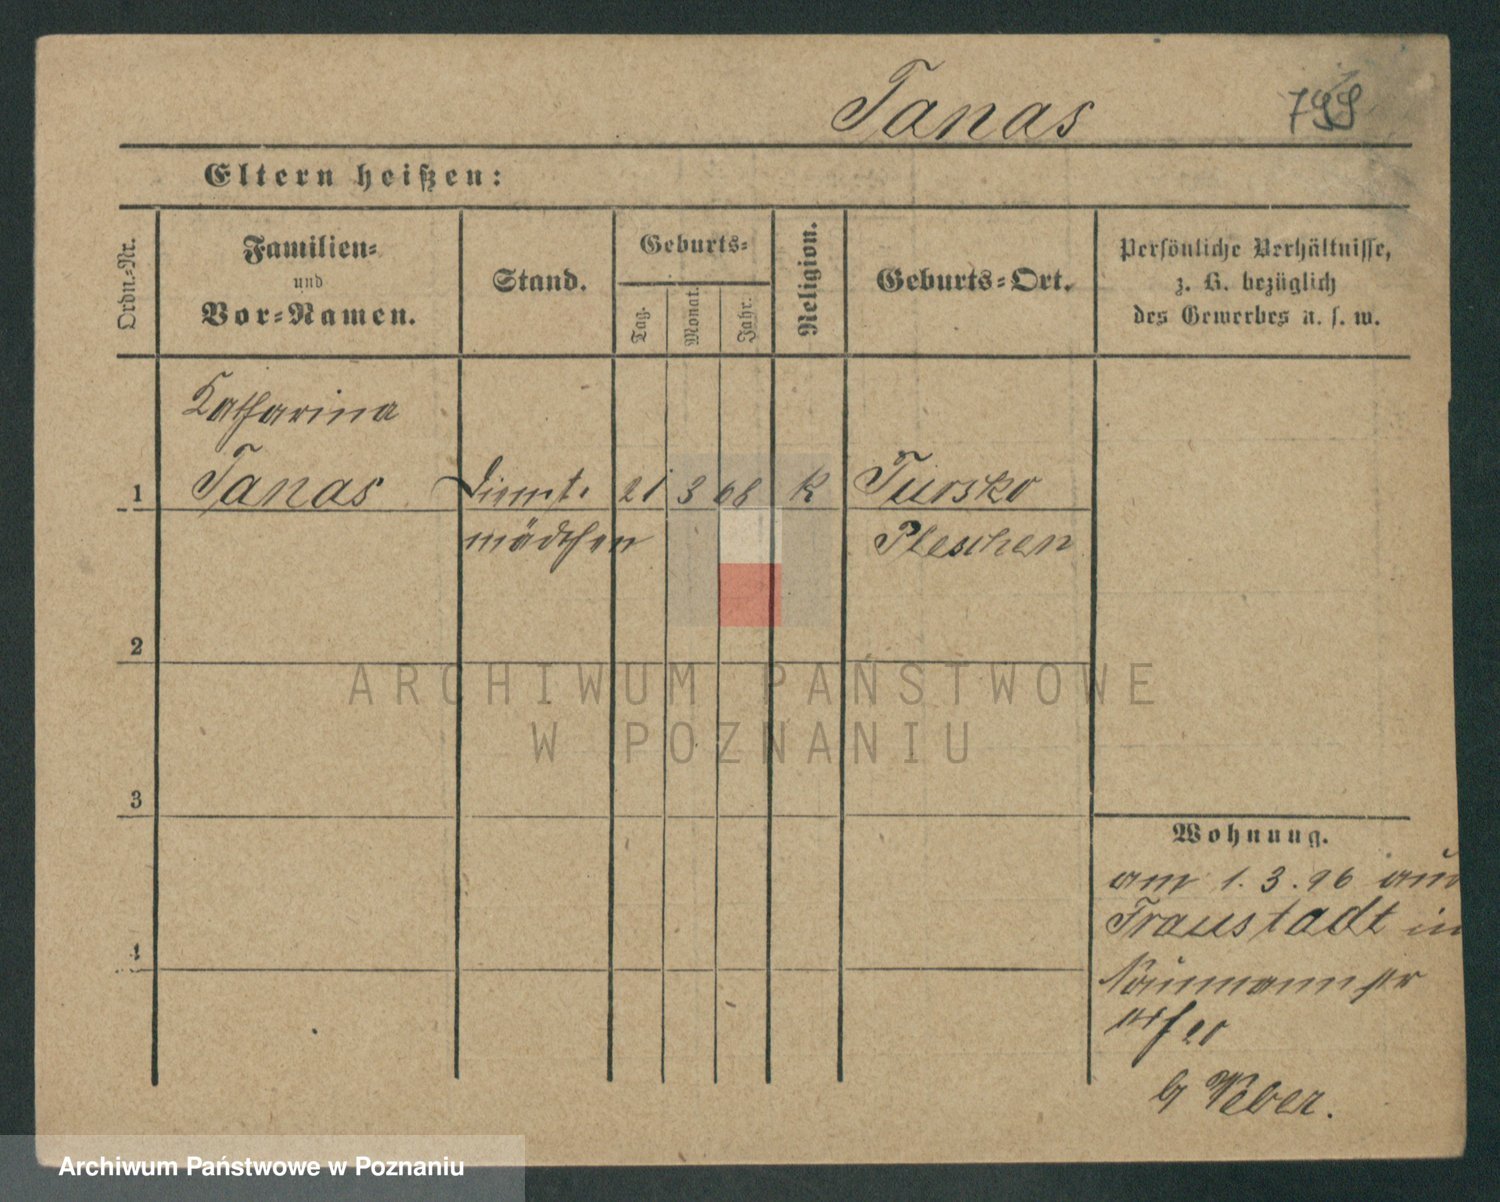 Tanas
799
Eltern heißen:
Ordn.-Nr.
Familien-
und
Vor-Namen.
Stand.
Geburts-
Tag.
Monat.
Jahr.
Religion.
Geburts-Ort.
Persönliche Verhältnisse,
z. B. bezüglich
des Gewerbes u. s. w.
Katharina
1 Tanas Dienst- 21 3 68 K Tursko
mädchen Pleschen
2
3
4
Wohnung.
am 1.3.96 aus
Fraustadt in
Naumannstr
20
b Weber.
ARCHIWUM PAŃSTWOWE
W POZNANIU
Archiwum Państwowe w Poznaniu